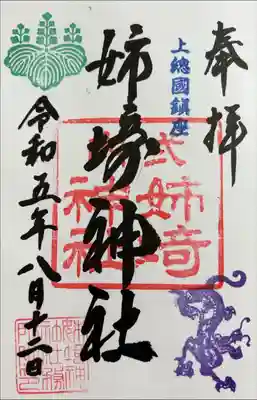 奉拝
上總國鎮座
姉埼神社
式
姉埼
神社
令和五年八月十二日